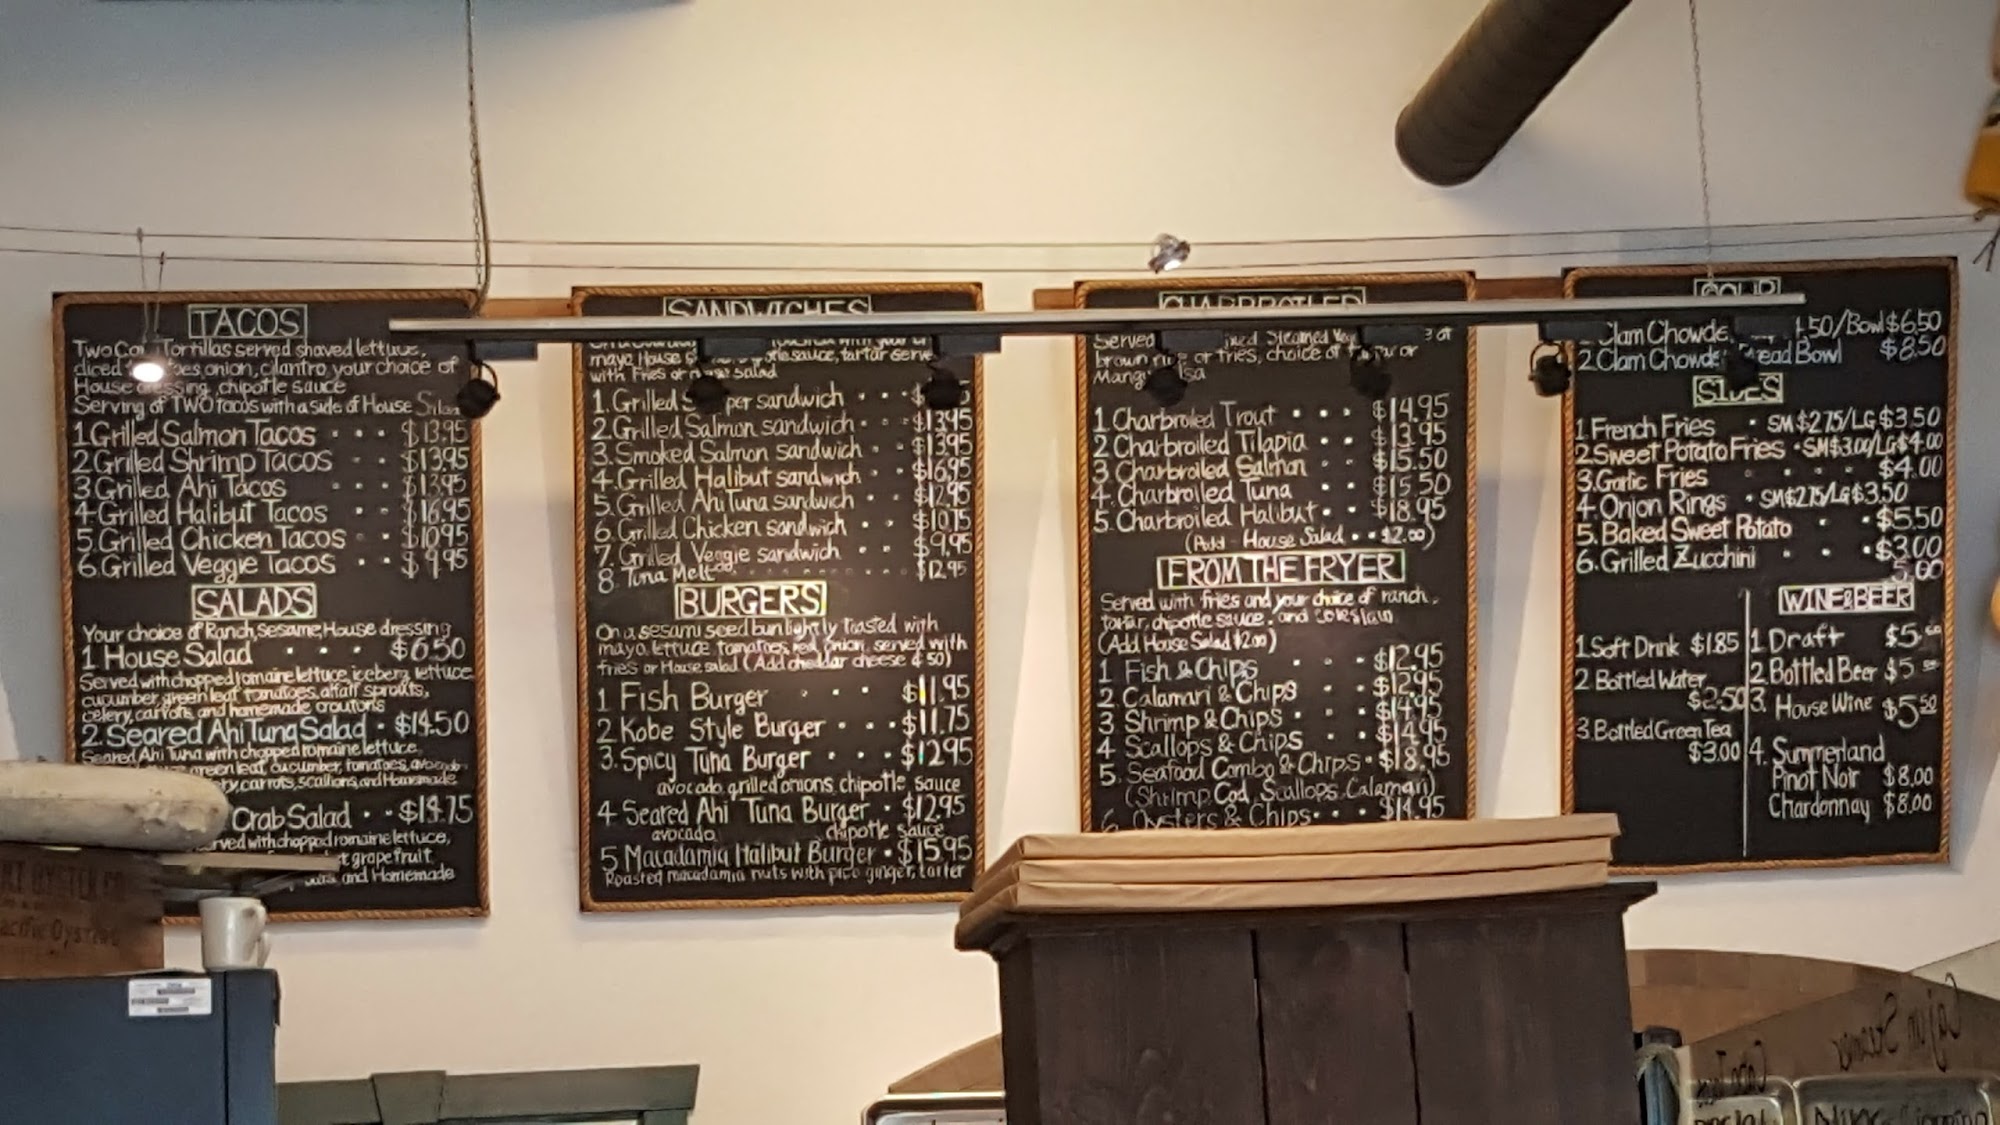 TACOS
Two Tortillas served shaved lettuce,
diced onion, cilantro, your choice of
House dressing, chipotle sauce
Serving of TWO tacos with a side of House
1 Grilled Salmon Tacos $13.95
2 Grilled Shrimp Tacos $13.95
3 Grilled Ahi Tacos $13.95
4 Grilled Halibut Tacos $16.95
5 Grilled Chicken Tacos $10.95
6. Grilled Veggie Tacos $9.95
SALADS
Your choice of Ranch, sesame, House dressing
1 House Salad $6.50
Served with chopped romaine lettuce, iceberg lettuce
cucumber, green leaf, tomatoes, alfalfa sprouts,
celery, carrots, and homemade croutons
2. Seared Ahi Tuna Salad $14.50
Seared Ahi Tuna with chopped romaine lettuce,
green leaf, cucumber, tomatoes,
carrots, scallions, and Homemade
Crab Salad $14.75
with chopped romaine lettuce,
grapefruit
and Homemade
SANDWICHES
mayo House sauce, tartar
with Fries or Salad
1. Grilled sandwich
2. Grilled Salmon sandwich $13.95
3. Smoked Salmon sandwich $13.95
4. Grilled Halibut sandwich $16.95
5. Grilled Ahi Tuna sandwich $12.95
6. Grilled Chicken sandwich $10.75
7. Grilled Veggie sandwich $9.95
8. Tuna Melt $12.95
BURGERS
On a sesami seed bun lightly toasted with
mayo, lettuce, tomatoes, red onion, served with
fries or House salad (Add cheddar cheese $.50)
1 Fish Burger $11.95
2 Kobe Style Burger $11.75
3. Spicy Tuna Burger $12.95
avocado, grilled onions, chipotle sauce
4 Seared Ahi Tuna Burger $12.95
avocado chipotle sauce
5 Macadamia Halibut Burger $15.95
Roasted macadamia nuts with ginger,
CHARBROILED
Served Steamed
brown rice or fries, choice of or
1 Charbroiled Trout $14.95
2 Charbroiled Tilapia $13.95
3 Charbroiled Salmon $15.50
4. Charbroiled Tuna $15.50
5. Charbroiled Halibut $18.95
(Add - House Salad $2.00)
FROM THE FRYER
Served with fries and your choice of ranch,
tartar, chipotle sauce, and coleslaw
(Add House Salad $2.00)
1 Fish & Chips $12.95
2. Calamari & Chips $12.95
3 Shrimp & Chips $14.95
4 Scallops & Chips $14.95
5. Seafood Combo & Chips $18.95
(Shrimp, Cod, Scallops, Calamari)
6. Oysters & Chips $14.95
SOUP
Clam .50/Bowl $6.50
2 Clam Bowl $8.50
SIDES
1 French Fries SM $2.75/LG $3.50
2 Sweet Potato Fries SM $3.00/LG $4.00
3. Garlic Fries $4.00
4. Onion Rings SM $2.75/LG $3.50
5. Baked Sweet Potato $5.50
6. Grilled Zucchini $3.00
5.00
1 Soft Drink $1.85
2 Bottled Water
$2.50
3. Bottled Green Tea
$3.00
WINE & BEER
1. Draft $5.
2. Bottled Beer $5
3. House Wine $5.50
4. Summerland
Pinot Noir $8.00
Chardonnay $8.00
OYSTER
Pacific Oysters
Cajun